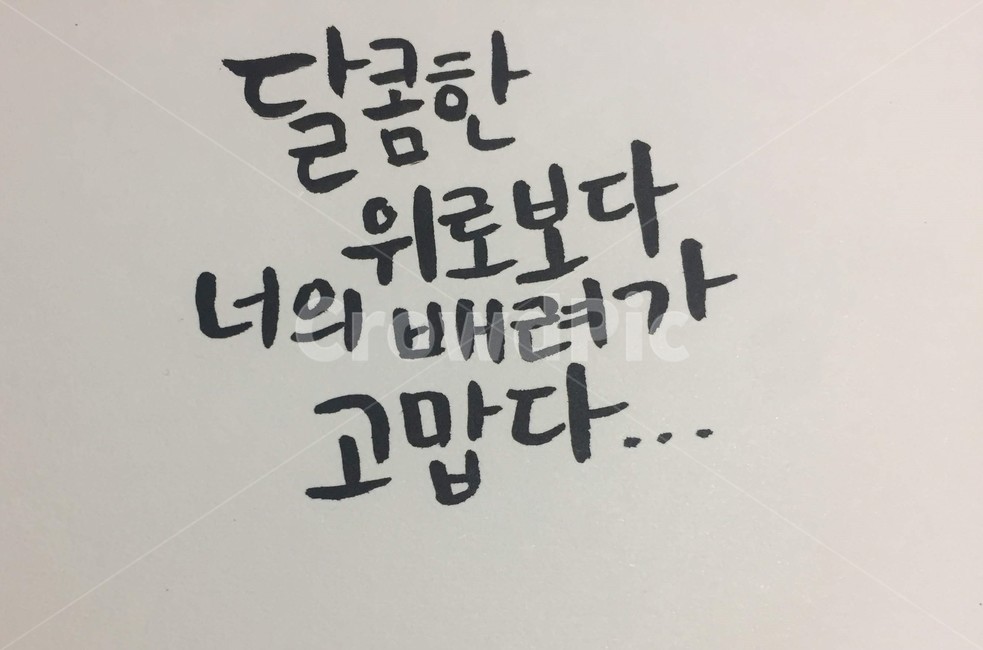 달콤한
위로보다
너의 배려가
고맙다...
CrowdPic